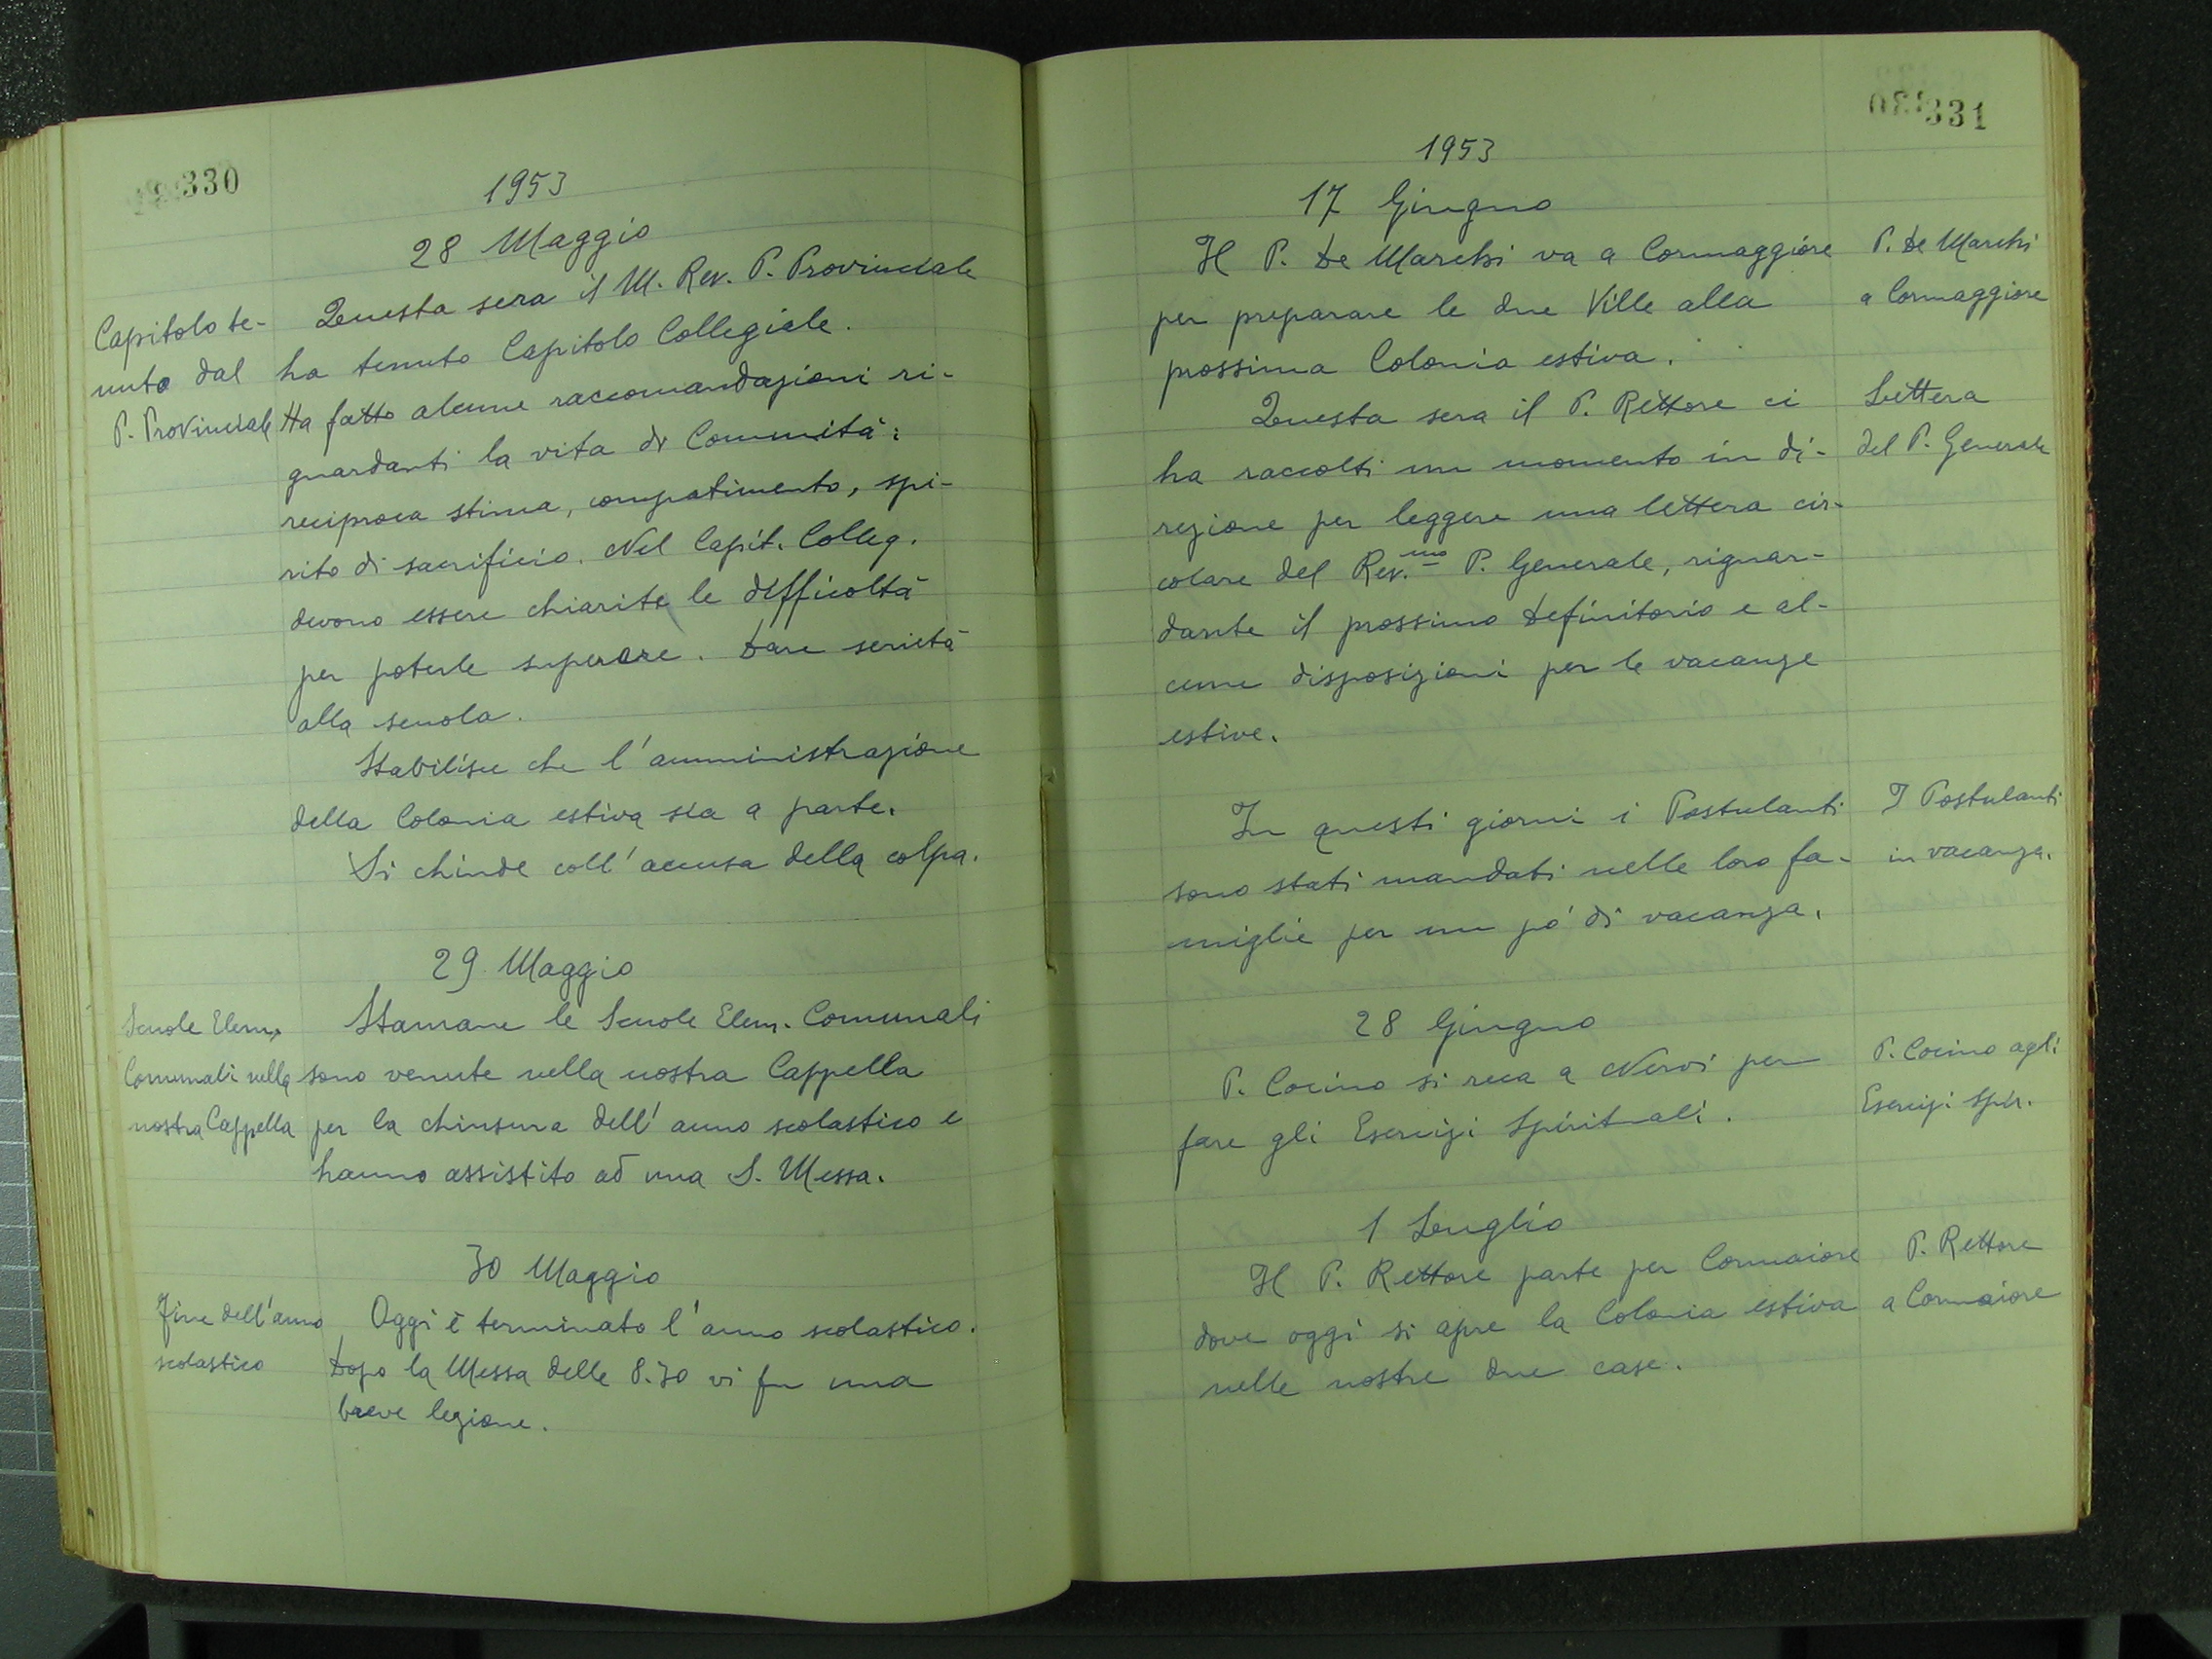 330
1953
28 Maggio
Capitolo te-
nuto dal
P. Provinciale
Questa sera il M. Rev. P. Provinciale
ha tenuto Capitolo Collegiale.
Ha fatto alcune raccomandazioni ri-
guardanti la vita di Comunità:
reciproca stima, compatimento, spi-
rito di sacrificio. Nel Capit. Colleg.
devono essere chiarite le difficoltà
per poterle superare. Dare serietà
alla scuola.
Stabilisce che l'amministrazione
della Colonia estiva sia a parte.
Si chiude coll'accusa della colpa.
29 Maggio
Scuole Elem.
Comunali nella
nostra Cappella
Stamane le Scuole Elem. Comunali
sono venute nella nostra Cappella
per la chiusura dell'anno scolastico e
hanno assistito ad una S. Messa.
30 Maggio
Fine dell'anno
scolastico
Oggi è terminato l'anno scolastico.
Dopo la Messa delle 8.30 vi fu una
breve lezione.
331
1953
17 Giugno
Il P. De Marchi va a Cormaggiore
per preparare le due Ville alla
prossima Colonia estiva.
P. De Marchi
a Cormaggiore
Questa sera il P. Rettore ci
ha raccolti un momento in di-
rezione per leggere una lettera cir-
colare del Rev.mo P. Generale, riguar-
dante il prossimo Definitorio e al-
cune disposizioni per le vacanze
estive.
Lettera
del P. Generale
In questi giorni i Postulanti
sono stati mandati nelle loro fa-
miglie per un pó di vacanza.
I Postulanti
in vacanza.
28 Giugno
P. Cocino si reca a Nervi per
fare gli Esercizi Spirituali.
P. Cocino agli
Esercizi Spir.
1 Luglio
Il P. Rettore parte per Cormaiore
dove oggi si apre la Colonia estiva
nelle nostre due case.
P. Rettore
a Cormaiore